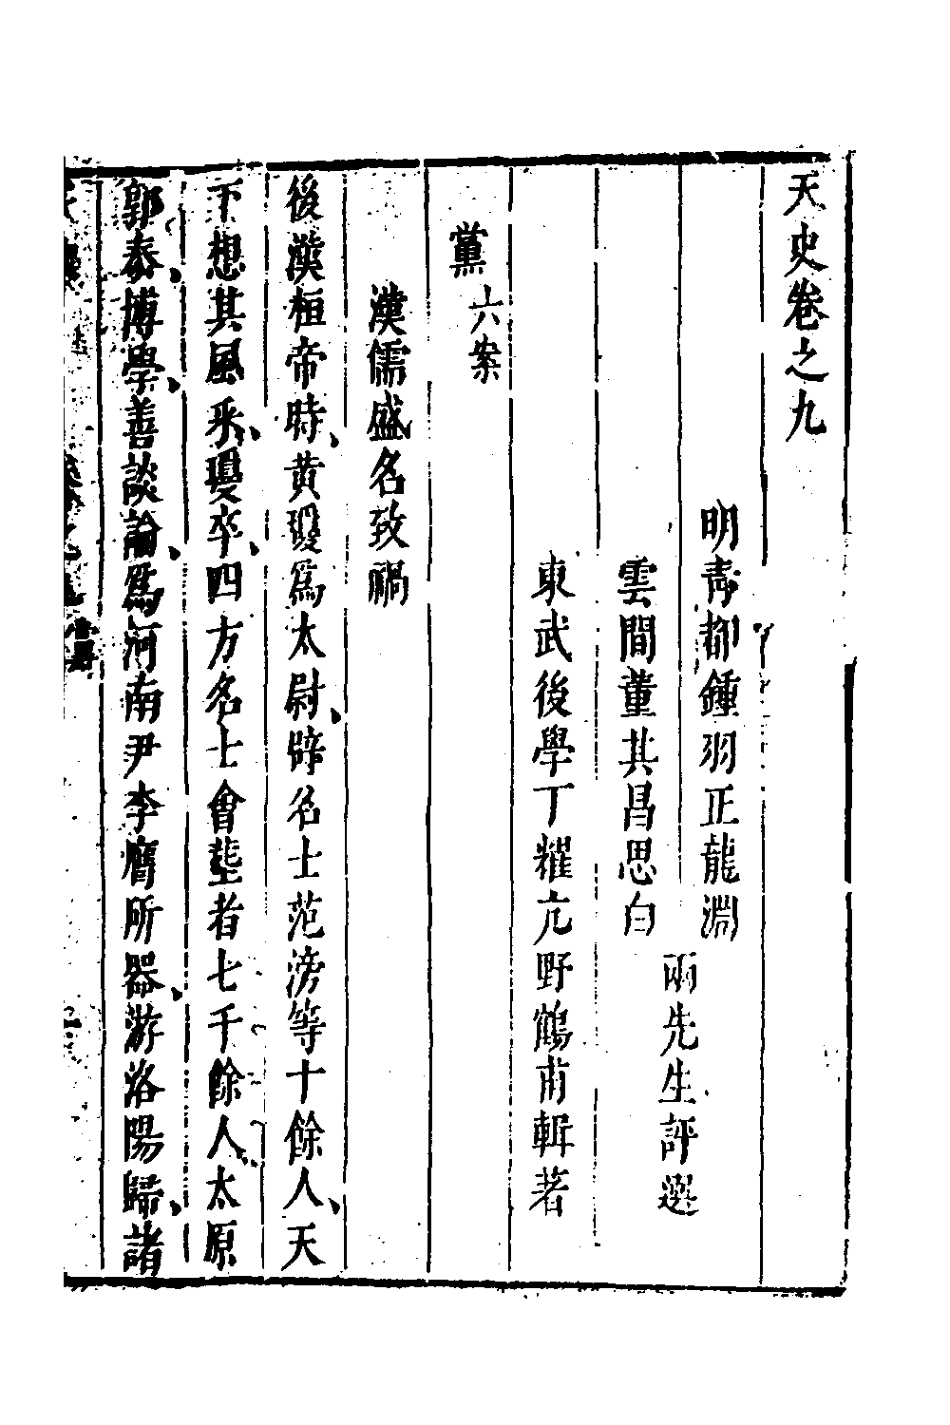 天史卷之九
明青都鍾羽正龍淵
兩先生評選
雲間董其昌思白
東武後學丁耀亢野鶴甫輯著
黨六案
漢儒盛名致禍
後漢桓帝時黃瓊爲太尉辟名士范滂等十餘人天
下想其風采瓊卒四方名士會塟者七千餘人太原
郭泰博學善談論爲河南尹李膺所器游洛陽歸諸